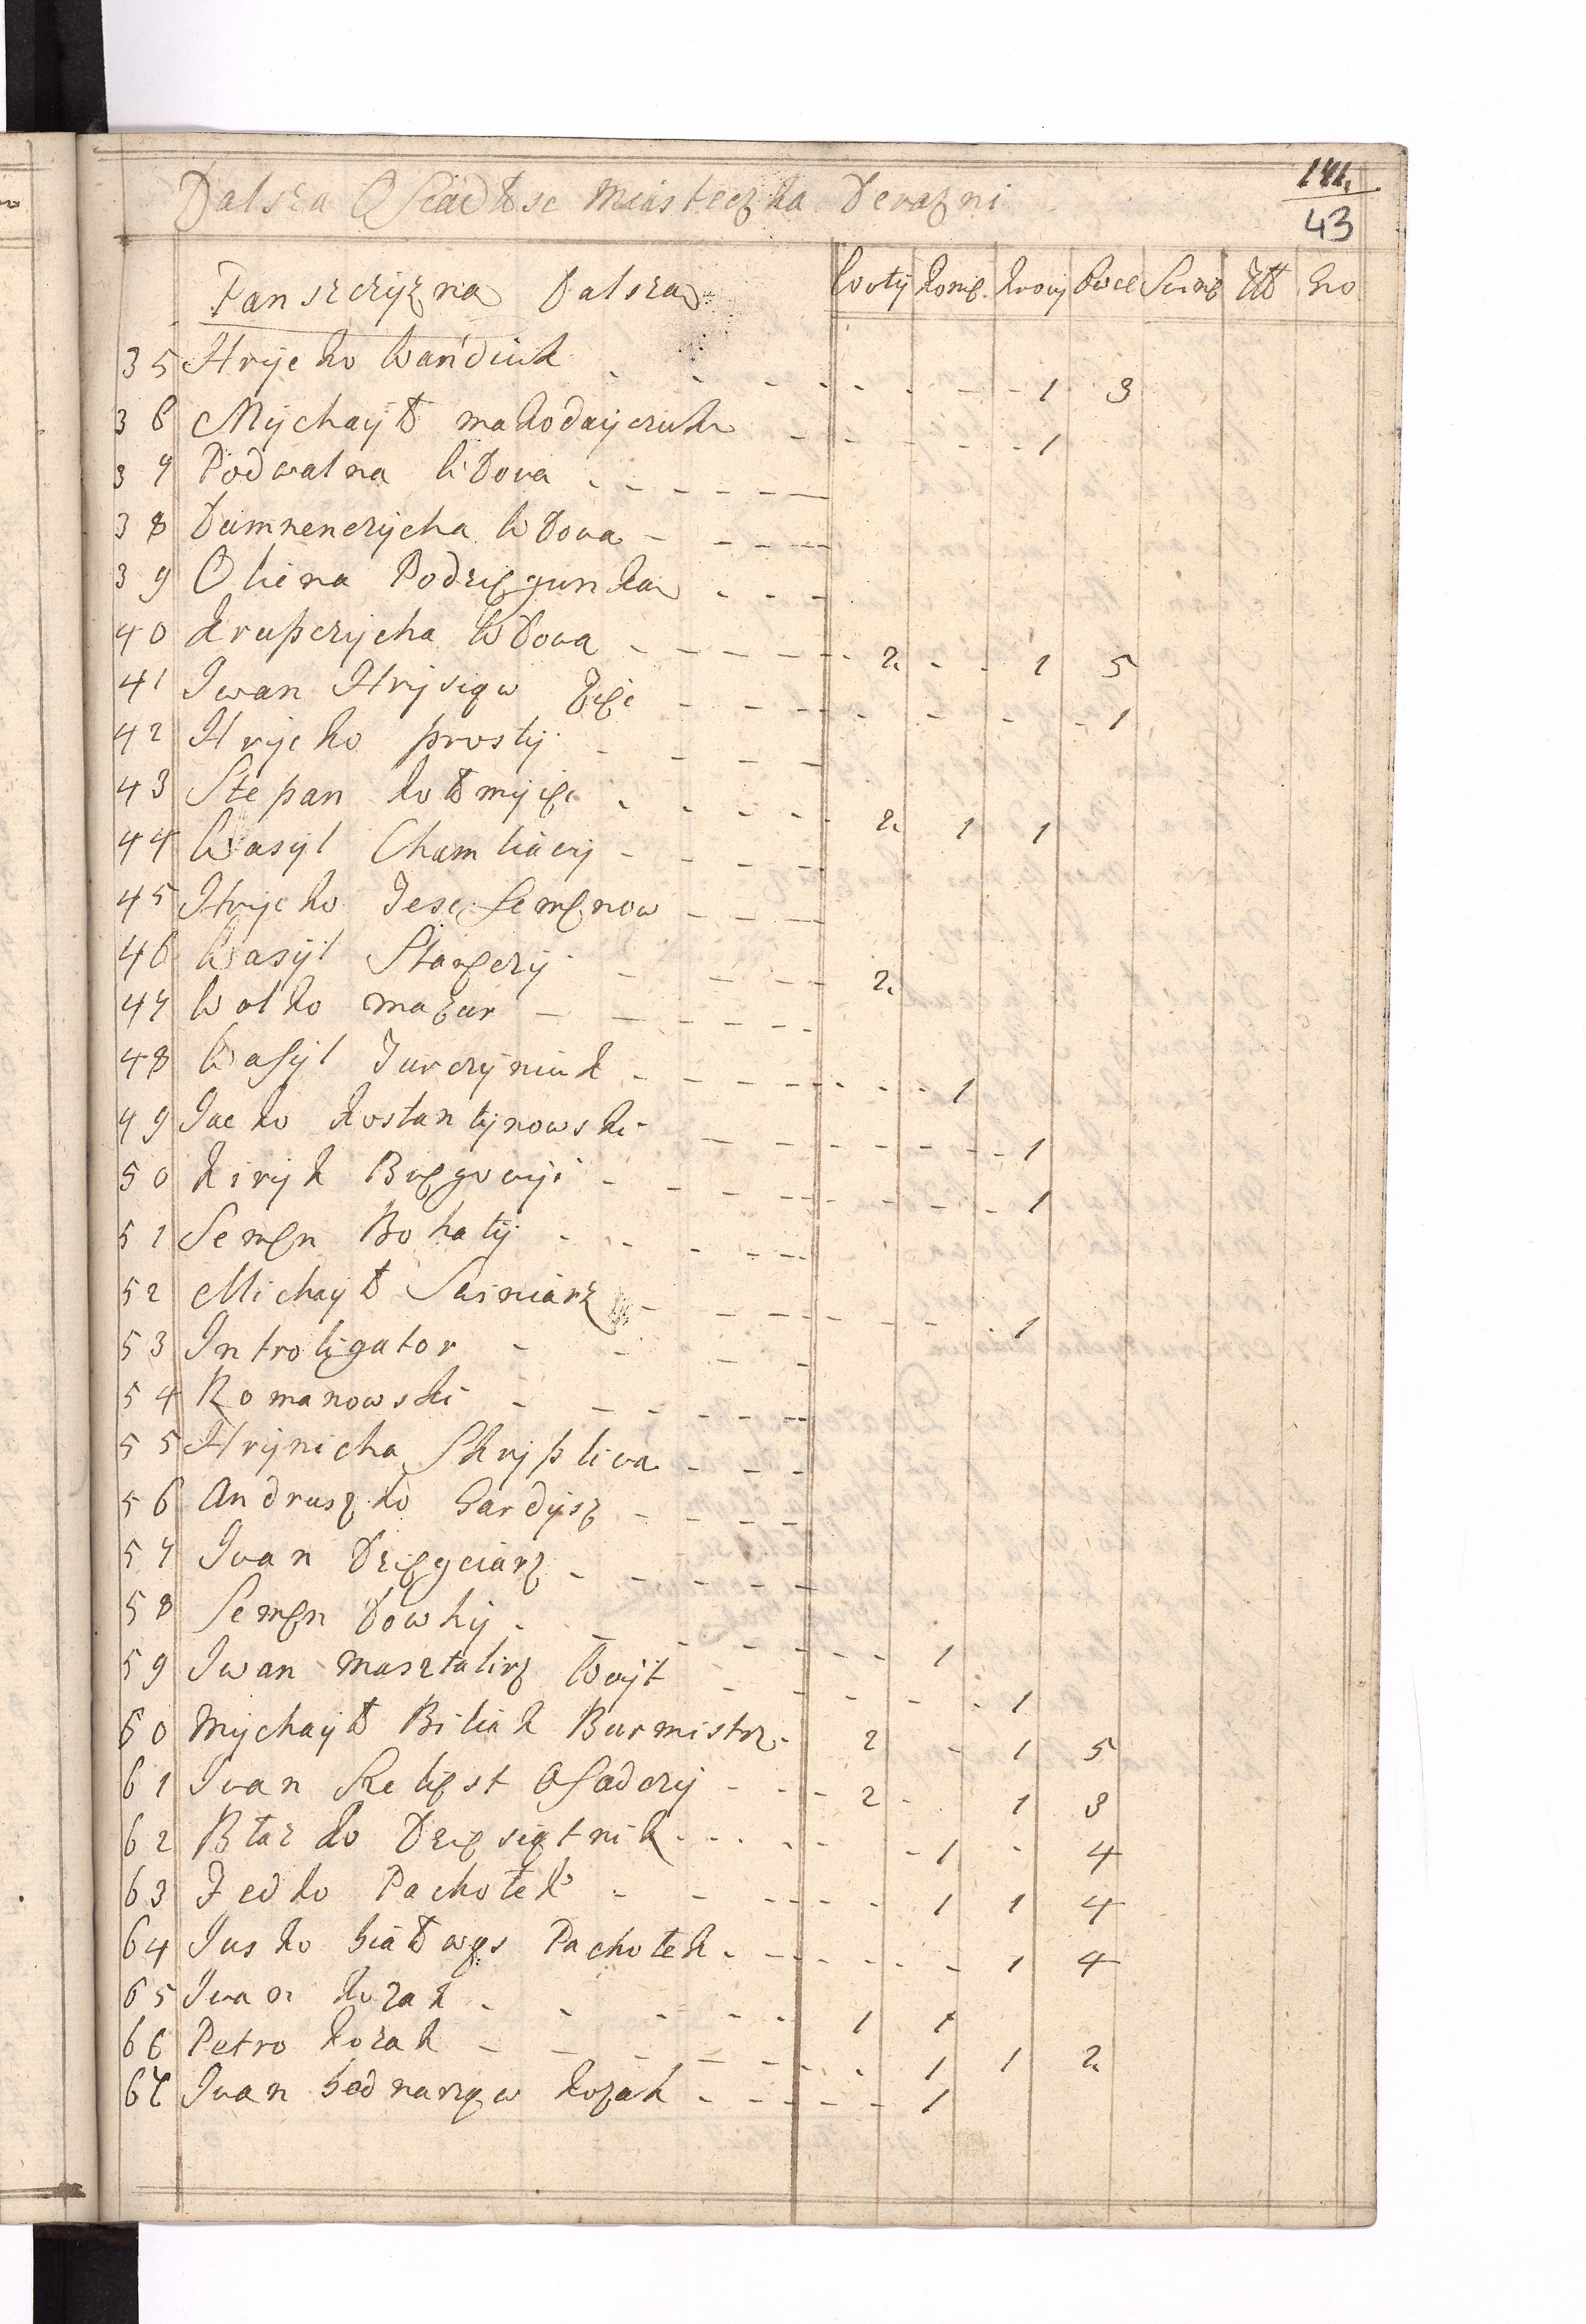 Dalsza Osiadłosc Miasteczka Derazni
141.
43
Panszczyzna Dalsza Woły Konie Krowy Owce Swinie Zło Gro
35 Hryćko Wańdiuk 1 3
36 Mychayło makodayczuk 1
37 Podwalna Wdova
38 Dumnenczycha Wdova
39 Oliena Podzięgunka
40 Krupczycha Wdova 2. 1 5
41 Iwan Hrysiqw Zięć 1
42 Hryćko prosty
43 Stepan Kołomyiec 2. 1 1
44 Wasyl Chamliavy
45 Hryćko Tesc Semenow
46 Wasyl Starczy 2.
47 Wolko mazur
48 Wasyl Jurczyniuk 1
49 Jacko Kostantynowski 1
50 Kiryk 1
51 Semen Bohaty
52 Michayło Suśniarz 1
53 Introligator
54 Romanowski
55 Hrynicha Skrypliva
56 Andruszko Gardysz
57 Ivan Dziegciarz
58 Semen Dowhy 1
59 Iwan Masztalirz Woyt 1
60 Mychayło Biliak Burmistrz 2 1 5
61 Ivan Osadczy 2 1 3
62 Błazko Dziesiętnik 1 4
63 Fedko Pachołek 1 1 4
64 Jusko Pachołek 1 4
65 Ivan Kozak 1 1
66 Petro Kozak 1 1 2.
67 Ivan bednarzqw Kozak 1